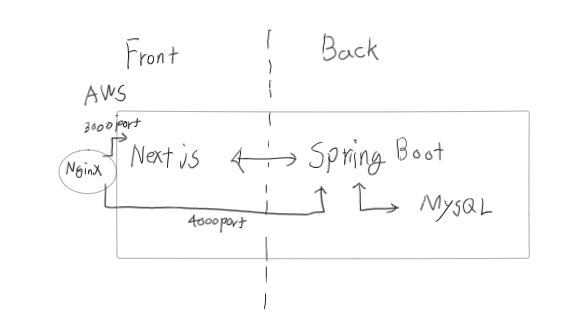 Front
Back
AWS
3000port
Nginx
Nextjs
Spring Boot
MySQL
4000port